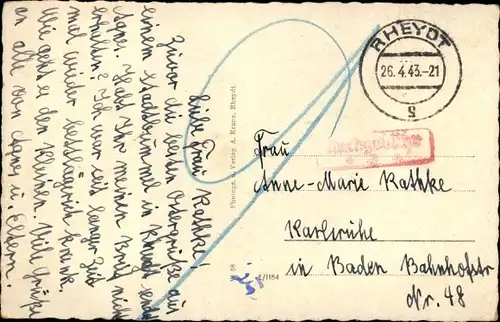 Liebe Frau Kathke!
Zuvor die besten Ostergrüße aus
einem Stadtbummel in Rheydt sendet
Agnes. Habt Ihr meinen Brief nicht
erhalten? Ich war seit langer Zeit
mal wieder bettlägrich krank.
Wie geht es den Kleinen. Viele Grüße
an alle von Agnes u. Eltern.
Photogr. u. Verlag A. Kranz, Rheydt.
88
E/1184
RHEYDT
26.4.43.-21
g
Nachgebühr
Frau
Anne-Marie Kathke
Karlsruhe
in Baden Bahnhofstr
Nr. 48